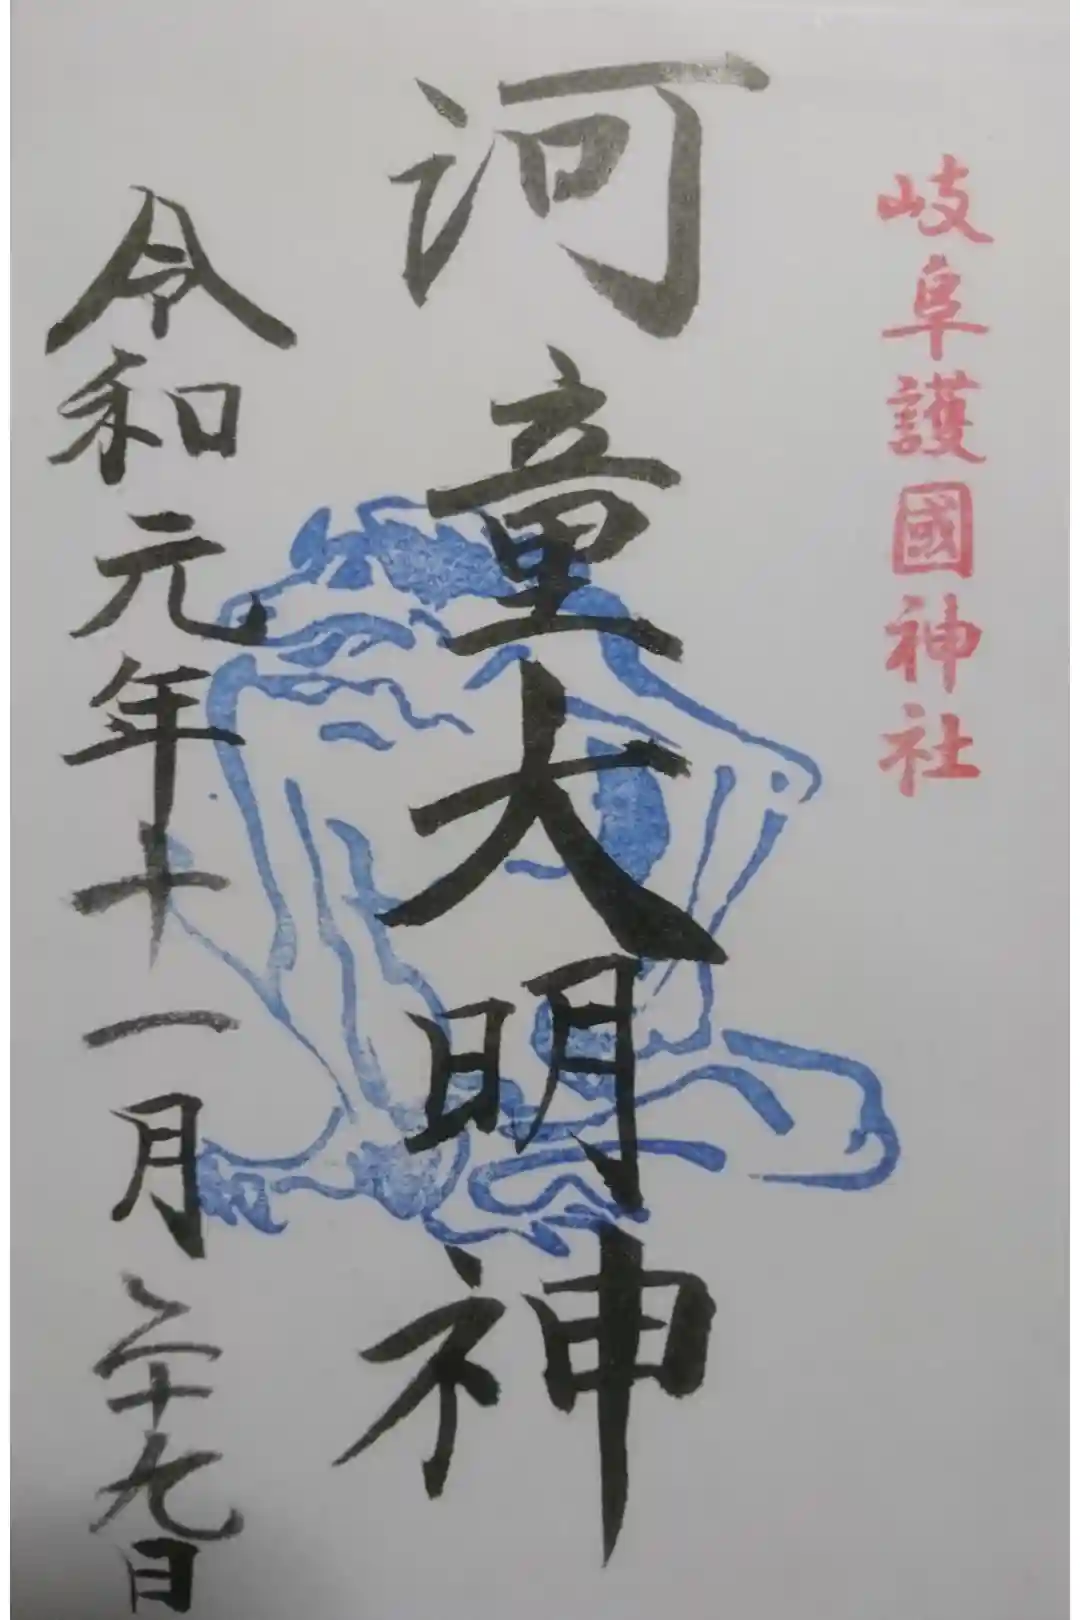 岐阜護國神社
河童大明神
令和元年十一月二十九日